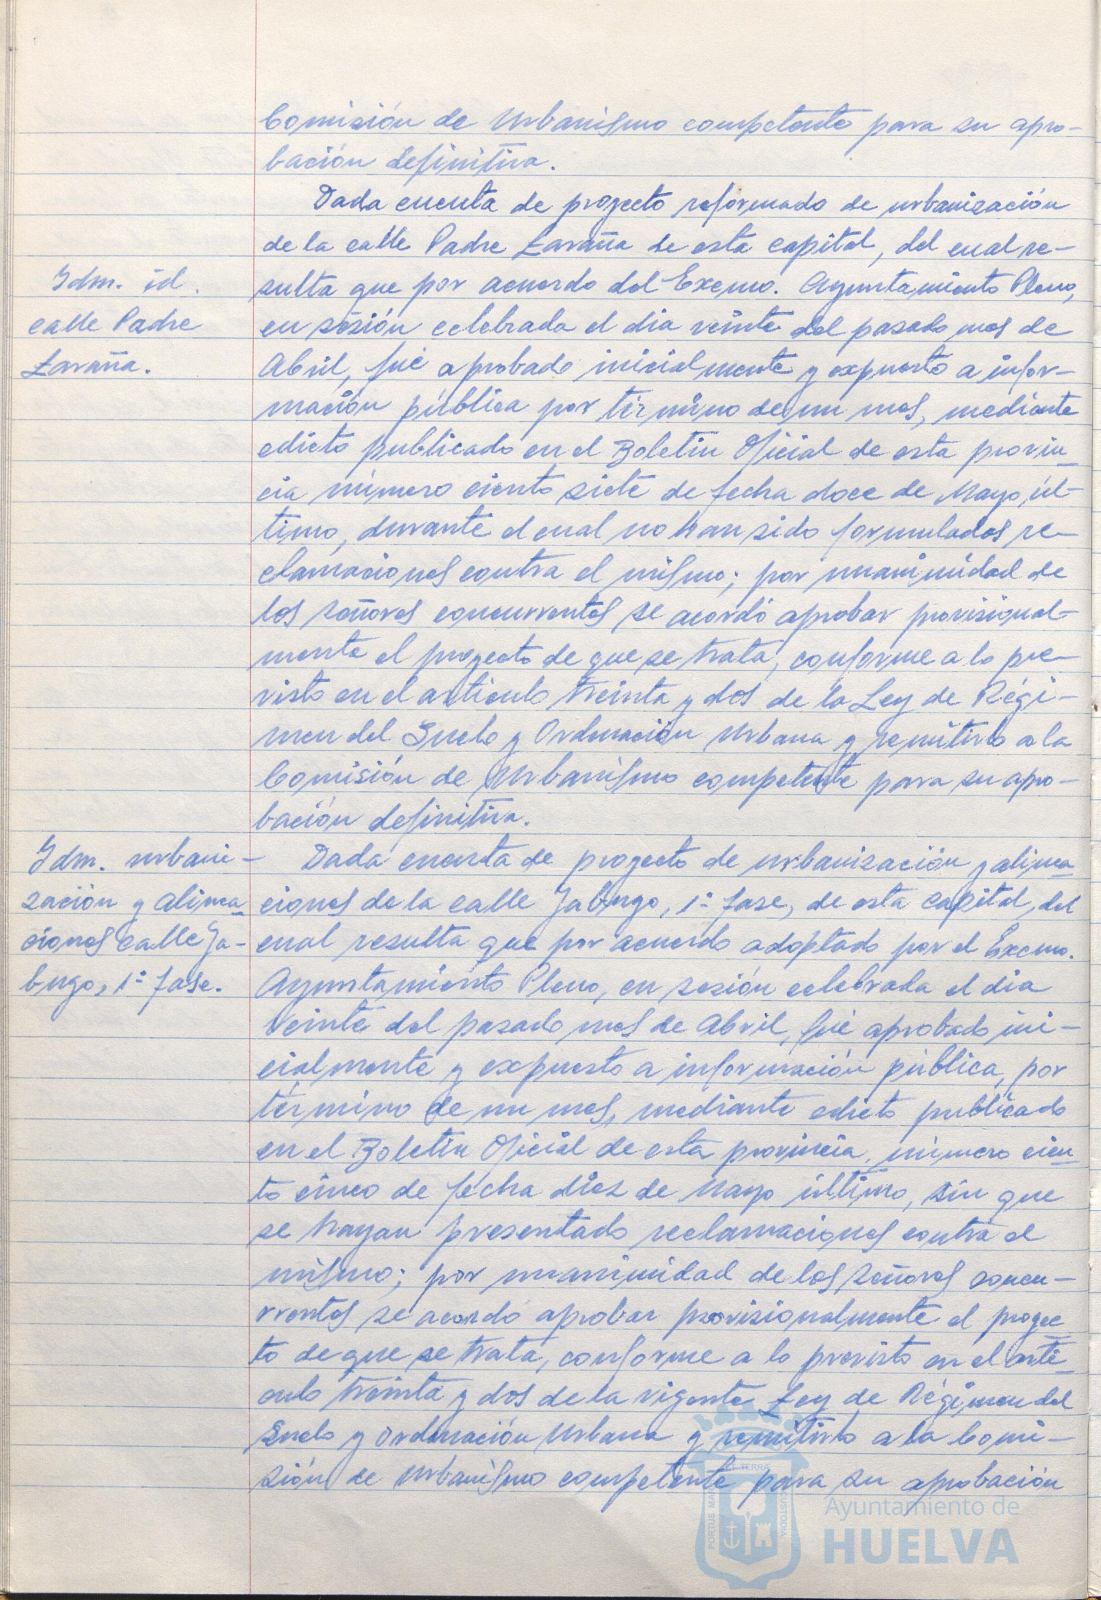 Comisión de Urbanismo competente para su apro-
bación definitiva.
Dada cuenta de proyecto reformado de urbanización
de la calle Padre Laraña de esta capital, del cual re-
Idm. id.
calle Padre
Laraña.
sulta que por acuerdo del Excmo. Ayuntamiento Pleno,
en sesión celebrada el dia veinte del pasado mes de
Abril, fué aprobado inicialmente y expuesto a infor-
mación pública por término de un mes, mediante
edicto publicado en el Boletin Oficial de esta provin-
cia número ciento siete de fecha doce de Mayo, úl-
timo, durante el cual no han sido formulados re-
clamaciones contra el mismo; por unanimidad de
los señores concurrentes se acordó aprobar provisional-
mente el proyecto de que se trata, conforme a lo pre-
visto en el articulo treinta y dos de la Ley de Régi-
men del Suelo y Ordenación Urbana y remitirlo a la
Comisión de Urbanismo competente para su apro-
bación definitiva.
Idm. urbani-
zación y alinea-
ciones calle Ja-
bugo, 1ª fase.
Dada cuenta de proyecto de urbanización y alinea
ciones de la calle Jabugo, 1ª fase, de esta capital, del
cual resulta que por acuerdo adoptado por el Excmo.
Ayuntamiento Pleno, en sesión celebrada el dia
veinte del pasado mes de Abril, fué aprobado ini-
cialmente y expuesto a información pública, por
término de un mes, mediante edicto publicado
en el Boletin Oficial de esta provincia, número cien-
to cinco de fecha diez de Mayo último, sin que
se hayan presentado reclamaciones contra el
mismo; por unanimidad de los señores concu-
rrentes se acordó aprobar provisionalmente el proyec
to de que se trata, conforme a lo previsto en el arti-
culo treinta y dos de la vigente Ley de Régimen del
Suelo y Ordenación Urbana y remitirlo a la Comi-
sión de Urbanismo competente para su aprobación
Ayuntamiento de
HUELVA